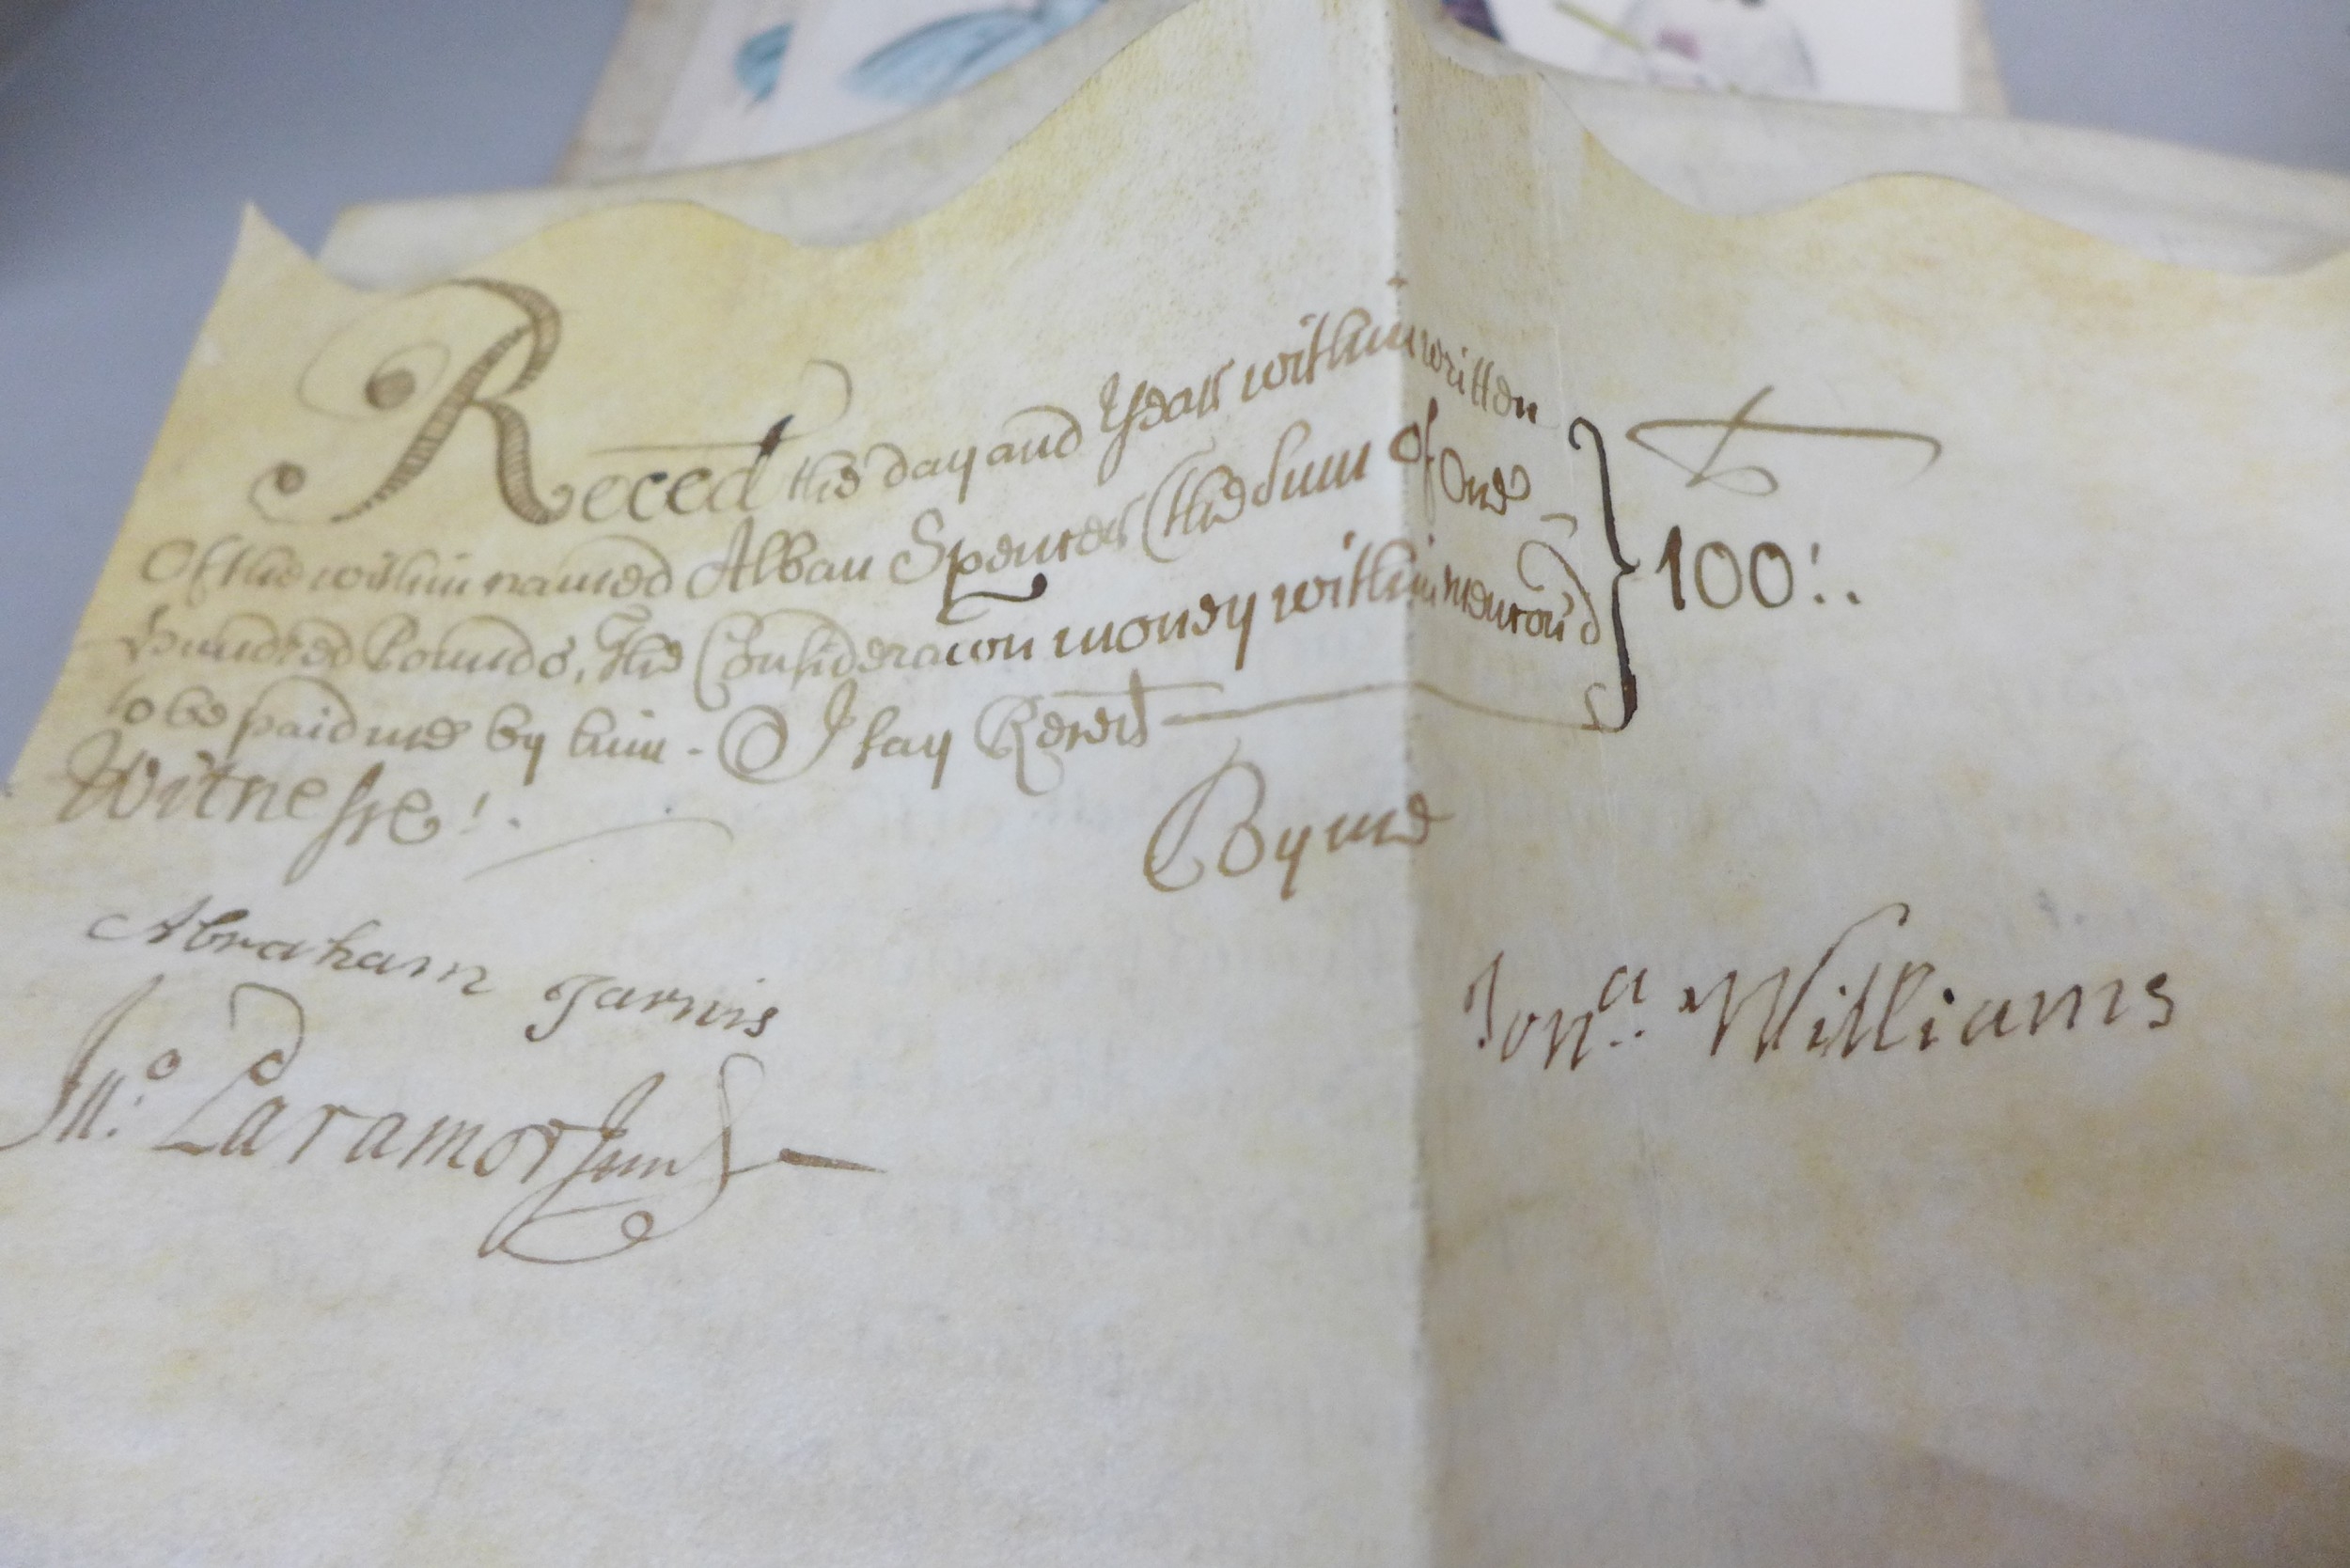 Reced the day and Year within written
Of the within named Alban Spencer the Sum of One
hundred Pounds, The Consideracon money within mencon'd
to be paid me by him - I say Receed
£
100:.
Witnesse:.
By me
Abraham Jarvis
Jno: Laramor Jun
Jona: Williams